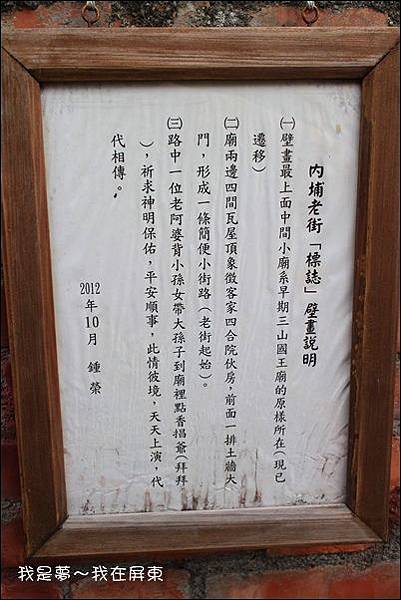 內埔老街「標誌」壁畫說明
㈠壁畫最上面中間小廟系早期三山國王廟的原樣所在(現已
遷移)
㈡廟兩邊四間瓦屋頂象徵客家四合院伙房,前面一排土牆大
門,形成一條簡便小街路(老街起始)。
㈢路中一位老阿婆背小孫女帶大孫子到廟裡點香揖爺(拜拜
),祈求神明保佑,平安順事,此情彼境,天天上演,代
代相傳。
2012年10月 鍾榮
我是夢~我在屏東